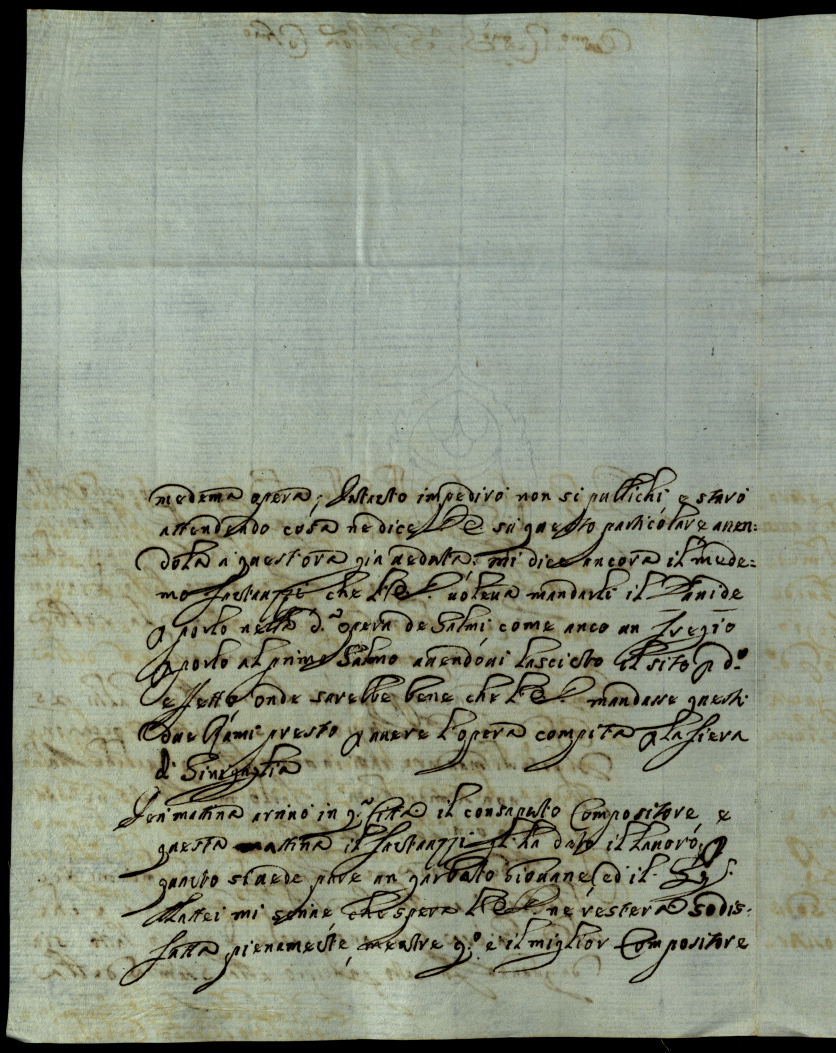 medema opera; Intanto impedirò non si publichi e starò
attendendo cosa ne dice V.E. su questo particolare auen:
dola a quest'ora già ueduta: mi dice ancora il mede:
mo che V.E. uoleua mandarli il Dauide
p porlo nella d.ª opera de Salmi come anco un Fregio
p porlo al primo Salmo auendoui lasciato il sito p d.º
effetto onde sarebbe bene che V.E. mandasse questi
due Rami presto p auere l'opera compita p la fiera
di Sinigaglia
Ieri matina arriuò in q.ª Città il consaputo Compositore, e
questa matina il gl'ha dato il lauoro, p
quanto si uede pare un garbato Giouane, ed il Sig.
Mattei mi scriue che spera V.E. ne resterà sodis:
fatta pienamente, mentre q.º è il miglior Compositore